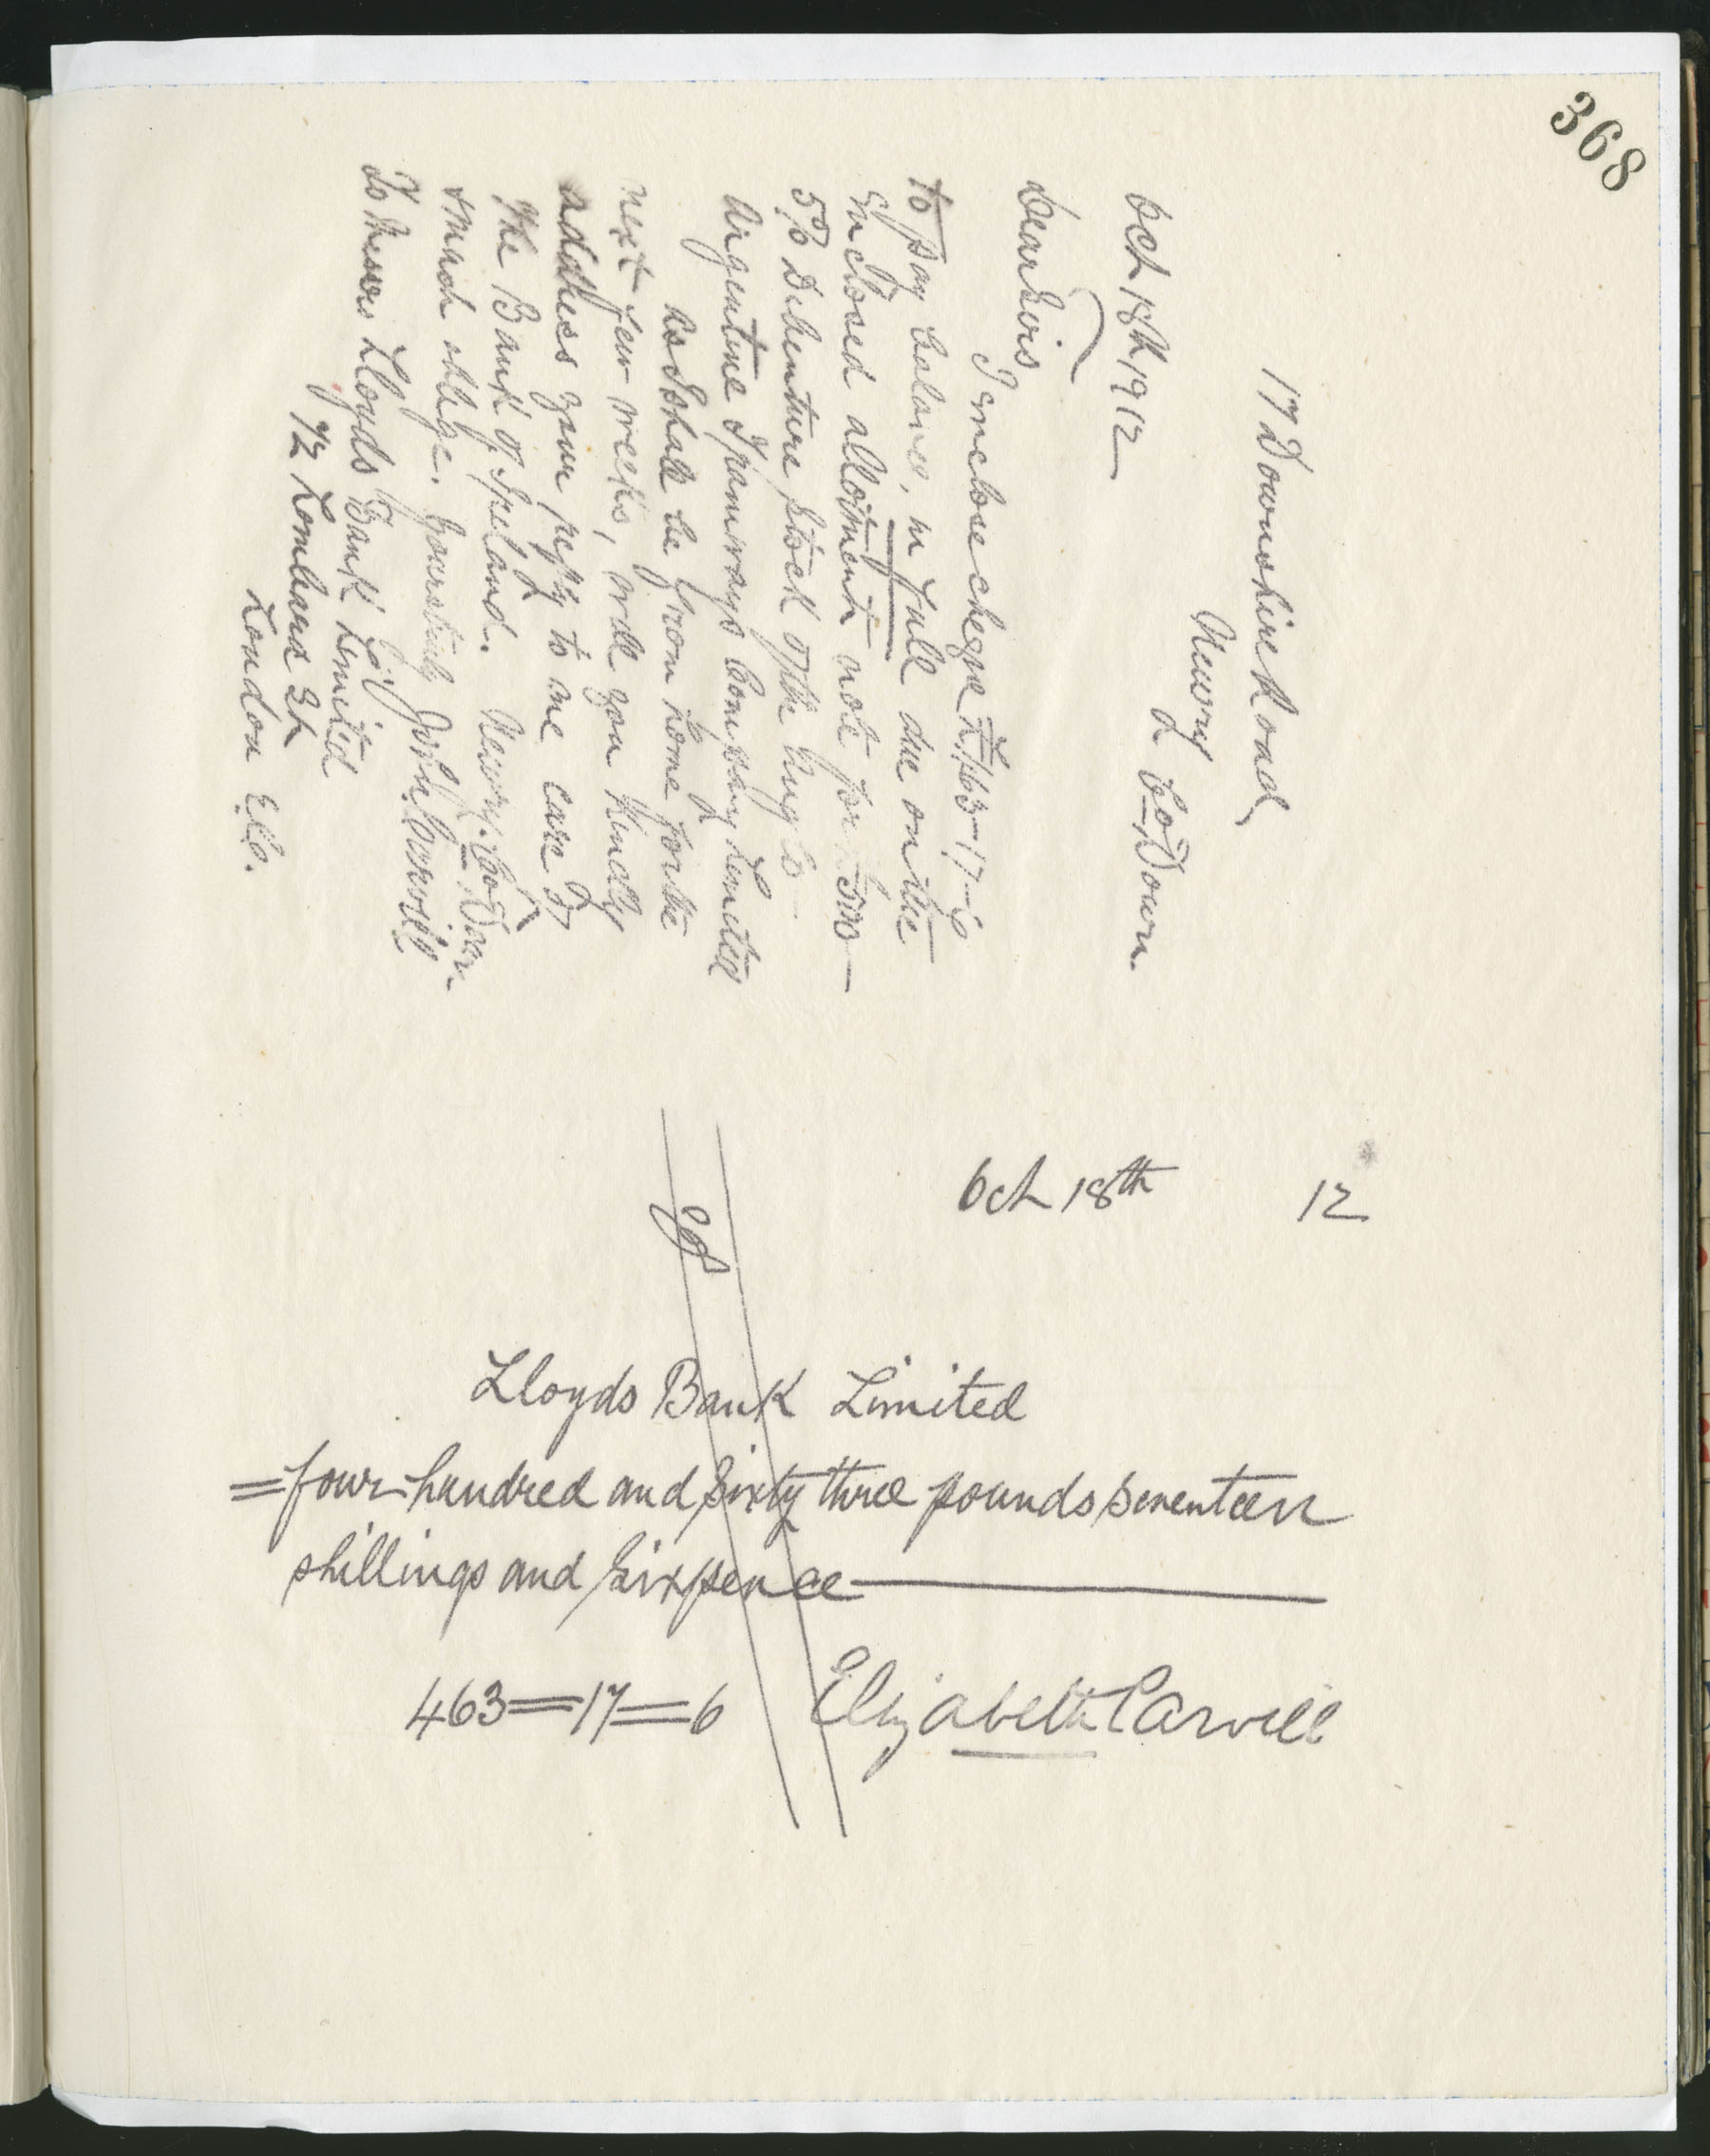 368
17 Downshire Road
Newry
Co Down.
Oct 18th 1912
Dear Sirs
I inclose cheque £463-17-6
to pay balance, in full due on the
inclosed allotment note for £500
5% Debenture Stock of the Anglo-
Argentine Tramways Company Limited
As I shall be from home for the
next few weeks, will you kindly
address your reply to me care of
The Bank of Ireland. Newry. Co Down
& much oblige. Yours truly John Carvill
To Messrs Lloyds Bank Limited
72 Lombard St
London E.C.
Oct 18th 12
& Co
Lloyds Bank Limited
=four hundred and sixty three pounds seventeen
shillings and sixpence
463=17=6 Elizabeth Carvill